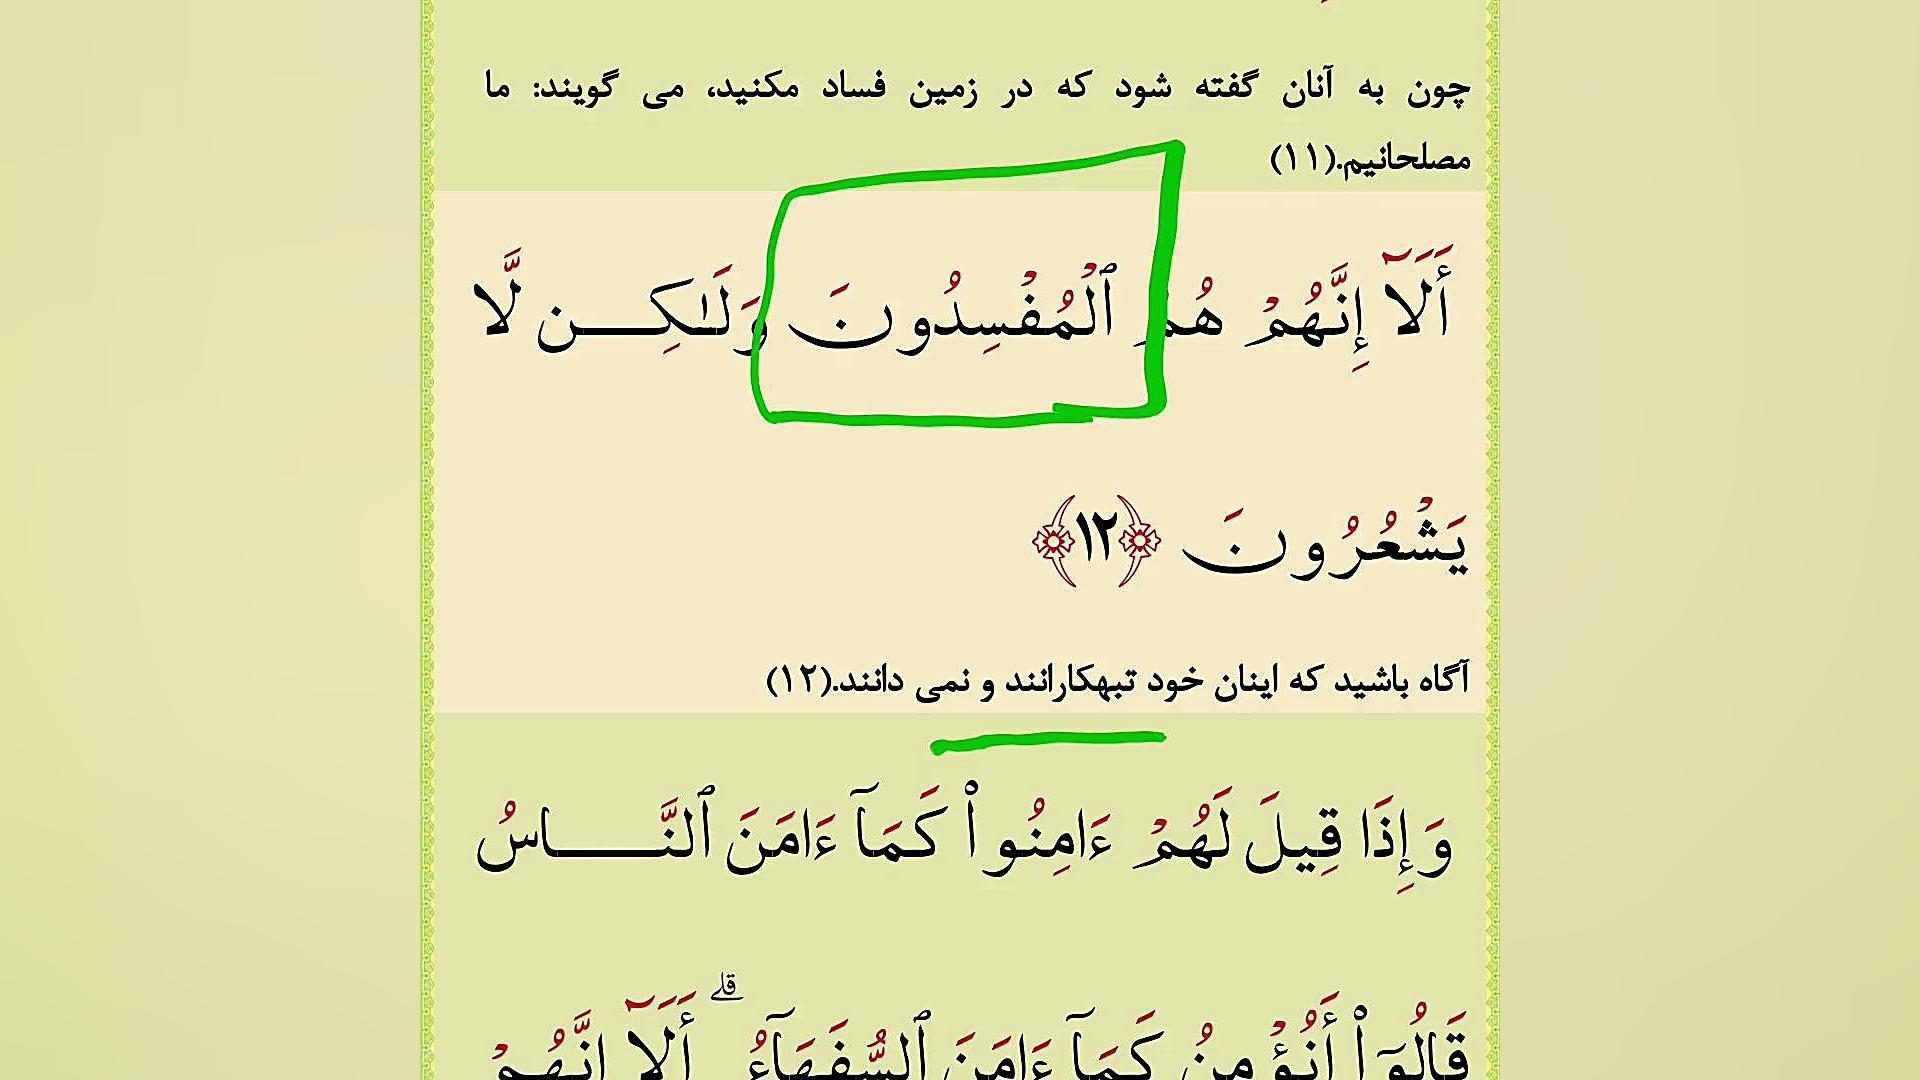 چون به آنان گفته شود که در زمین فساد مکنید، می گویند: ما
مصلحانیم.(۱۱)
أَلَآ إِنَّهُمْ هُمُ ٱلْمُفْسِدُونَ وَلَـٰكِـــن لَّا
يَشْعُرُونَ ﴿١٢﴾
آگاه باشید که اینان خود تبهکارانند و نمی دانند.(۱۲)
وَإِذَا قِيلَ لَهُمْ ءَامِنُوا۟ كَمَآ ءَامَنَ ٱلنَّـــاسُ
قَالُوٓا۟ أَنُؤْمِنُ كَمَآ ءَامَنَ ٱلسُّفَهَآءُ ۗ أَلَآ إِنَّهُمْ